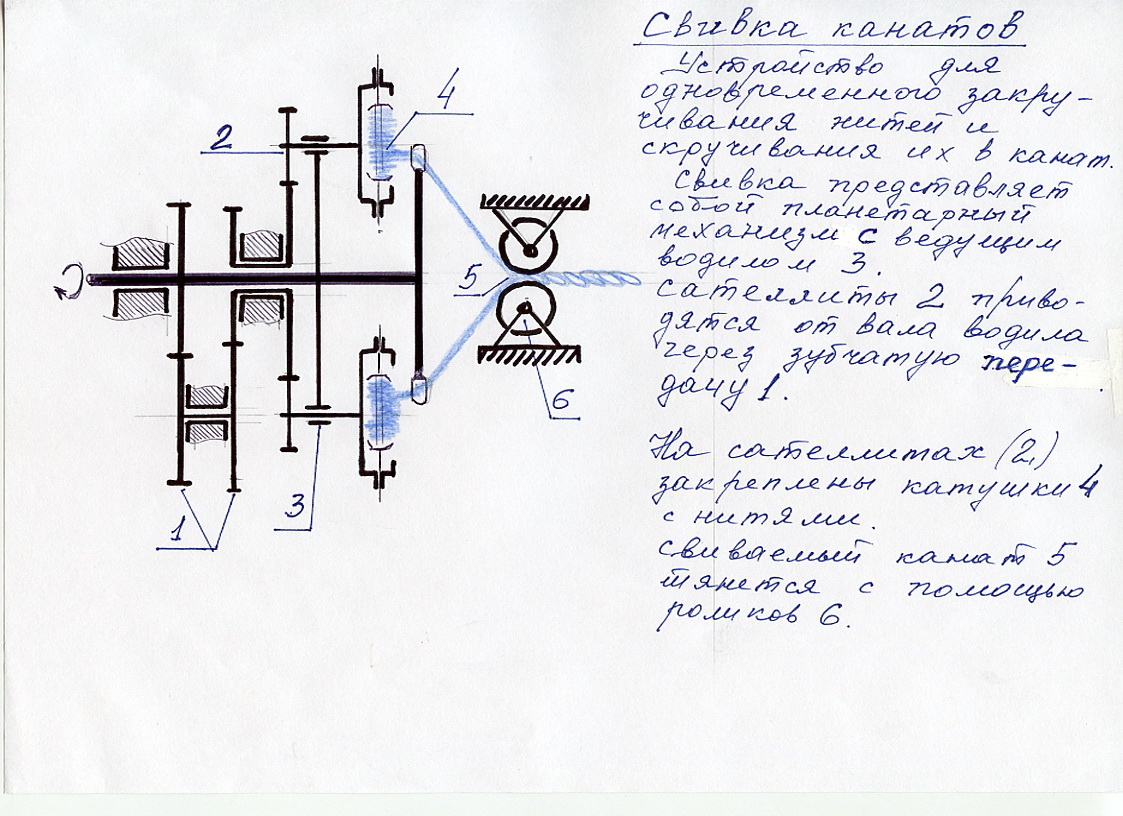 Свивка канатов
Устройство для
одновременного закру-
чивания нитей и
скручивания их в канат.
Свивка представляет
собой планетарный
механизм с ведущим
водилом 3.
Сателлиты 2 приво-
дятся от вала водила
через зубчатую пере-
дачу 1.
На сателлитах (2)
закреплены катушки 4
с нитями.
свиваемый канат 5
тянется с помощью
роликов 6.
4
2
5
6
3
1